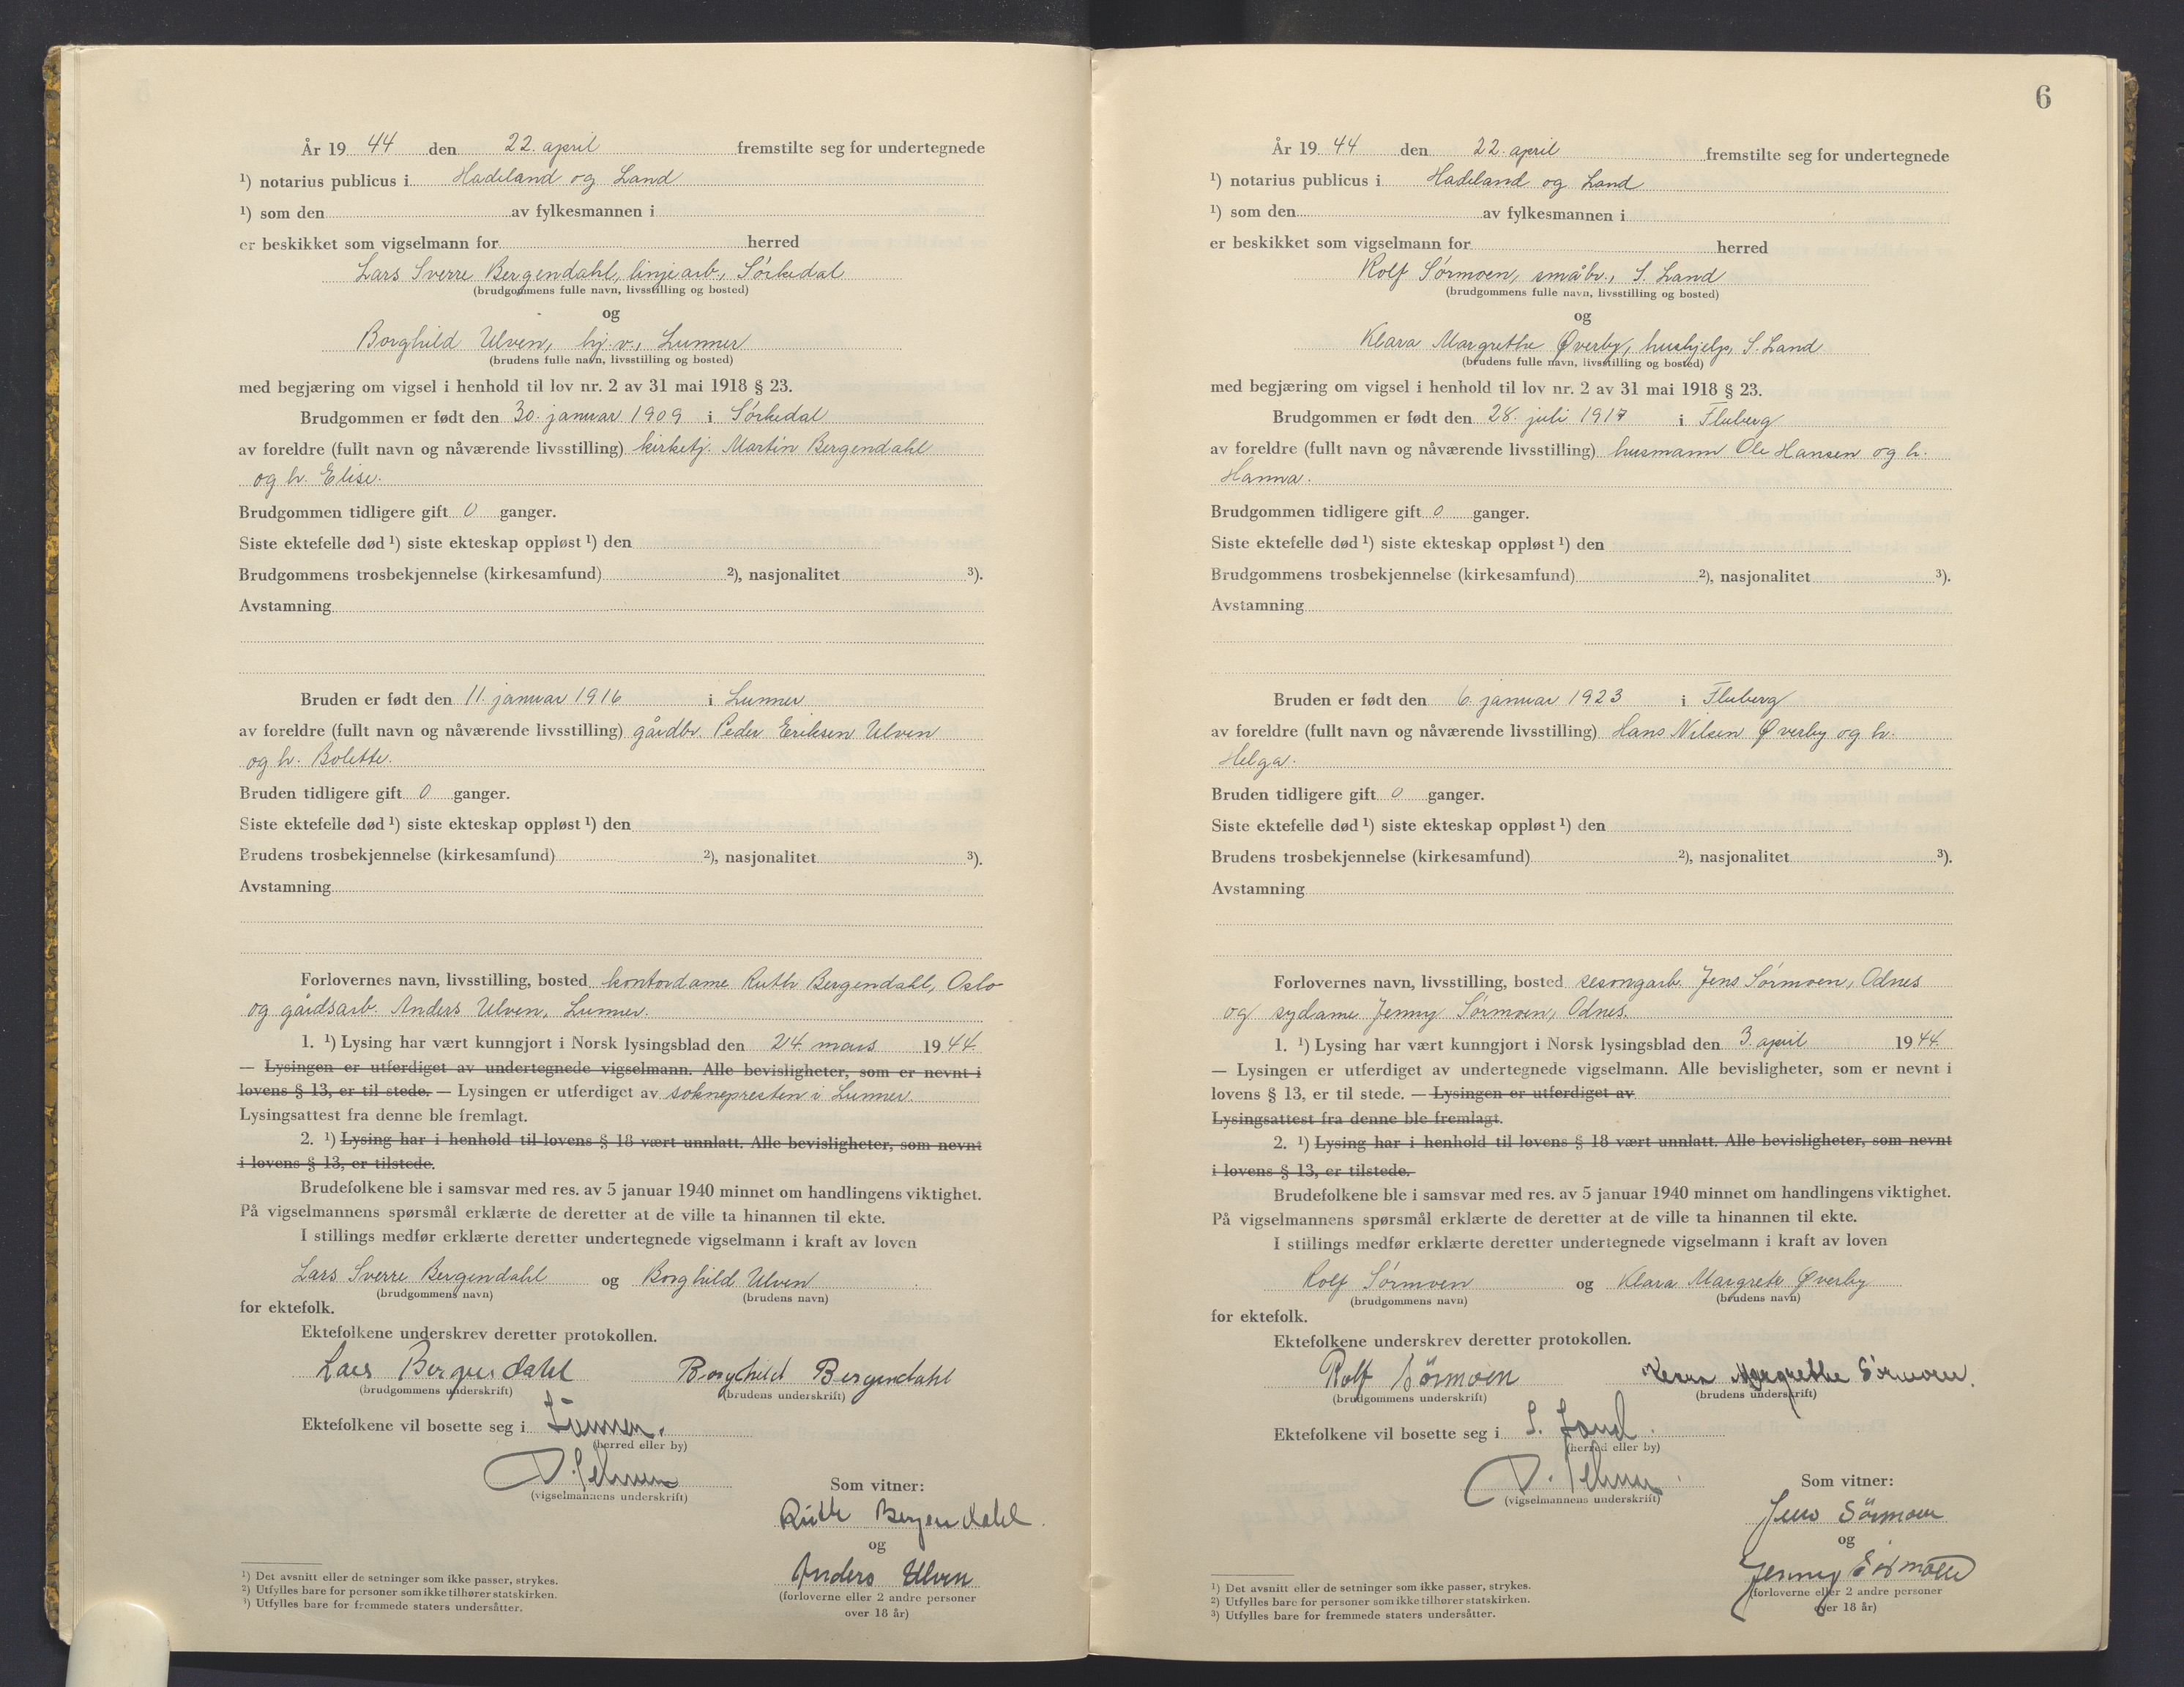 År 19 44 den 22. april fremstilte seg for undertegnede
¹) notarius publicus i Hadeland og Land
¹) som den av fylkesmannen i
er beskikket som vigselmann for herred
Lars Sverre Bergendahl, linjearb., Sörkedal
(brudgommens fulle navn, livsstilling og bosted)
og
Borghild Ulven, hj.v., Lunner
(brudens fulle navn, livsstilling og bosted)
med begjæring om vigsel i henhold til lov nr. 2 av 31 mai 1918 § 23.
Brudgommen er født den 30. januar 1909 i Sörkedal
av foreldre (fullt navn og nåværende livsstilling) kirketj. Martin Bergendahl
og h. Elise.
Brudgommen tidligere gift 0 ganger.
Siste ektefelle død ¹) siste ekteskap oppløst ¹) den
Brudgommens trosbekjennelse (kirkesamfund) ²), nasjonalitet ³).
Avstamning
Bruden er født den 11. januar 1916 i Lunner
av foreldre (fullt navn og nåværende livsstilling) gårdbr. Peder Eriksen Ulven
og h. Bolette.
Bruden tidligere gift 0 ganger.
Siste ektefelle død ¹) siste ekteskap oppløst ¹) den
Brudens trosbekjennelse (kirkesamfund) ²), nasjonalitet ³).
Avstamning
Forlovernes navn, livsstilling, bosted kontordame Ruth Bergendahl, Oslo
og gårdsarb. Anders Ulven, Lunner.
1. ¹) Lysing har vært kunngjort i Norsk lysingsblad den 24. mars 1944
— Lysingen er utferdiget av undertegnede vigselmann. Alle bevisligheter, som er nevnt i
lovens § 13, er til stede. — Lysingen er utferdiget av soknepresten i Lunner.
Lysingsattest fra denne ble fremlagt.
2. ¹) Lysing har i henhold til lovens § 18 vært unnlatt. Alle bevisligheter, som nevnt
i lovens § 13, er tilstede.
Brudefolkene ble i samsvar med res. av 5 januar 1940 minnet om handlingens viktighet.
På vigselmannens spørsmål erklærte de deretter at de ville ta hinannen til ekte.
I stillings medfør erklærte deretter undertegnede vigselmann i kraft av loven
Lars Sverre Bergendahl og Borghild Ulven
(brudgommens navn) (brudens navn)
for ektefolk.
Ektefolkene underskrev deretter protokollen.
Lars Bergendahl Borghild Bergendahl
(brudgommens underskrift) (brudens underskrift)
Ektefolkene vil bosette seg i Lunner.
(herred eller by)
(vigselmannens underskrift)
Som vitner:
Ruth Bergendahl.
og
Anders Ulven
(forloverne eller 2 andre personer
over 18 år)
¹) Det avsnitt eller de setninger som ikke passer, strykes.
²) Utfylles bare for personer som ikke tilhører statskirken.
³) Utfylles bare for fremmede staters undersåtter.
6
År 19 44 den 22. april fremstilte seg for undertegnede
¹) notarius publicus i Hadeland og Land
¹) som den av fylkesmannen i
er beskikket som vigselmann for herred
Rolf Sörmoen, småbr., S. Land
(brudgommens fulle navn, livsstilling og bosted)
og
Klara Margrethe Øverby, hushjelp, S. Land
(brudens fulle navn, livsstilling og bosted)
med begjæring om vigsel i henhold til lov nr. 2 av 31 mai 1918 § 23.
Brudgommen er født den 28. juli 1917 i Fluberg
av foreldre (fullt navn og nåværende livsstilling) husmann Ole Hansen og h.
Hanna.
Brudgommen tidligere gift 0 ganger.
Siste ektefelle død ¹) siste ekteskap oppløst ¹) den
Brudgommens trosbekjennelse (kirkesamfund) ²), nasjonalitet ³).
Avstamning
Bruden er født den 6. januar 1923 i Fluberg
av foreldre (fullt navn og nåværende livsstilling) Hans Nilsen Øverby og h.
Helga.
Bruden tidligere gift 0 ganger.
Siste ektefelle død ¹) siste ekteskap oppløst ¹) den
Brudens trosbekjennelse (kirkesamfund) ²), nasjonalitet ³).
Avstamning
Forlovernes navn, livsstilling, bosted sesongarb. Jens Sörmoen, Odnes
og sydame Jenny Sörmoen, Odnes.
1. ¹) Lysing har vært kunngjort i Norsk lysingsblad den 3. april 1944
— Lysingen er utferdiget av undertegnede vigselmann. Alle bevisligheter, som er nevnt i
lovens § 13, er til stede. — Lysingen er utferdiget av
Lysingsattest fra denne ble fremlagt.
2. ¹) Lysing har i henhold til lovens § 18 vært unnlatt. Alle bevisligheter, som nevnt
i lovens § 13, er tilstede.
Brudefolkene ble i samsvar med res. av 5 januar 1940 minnet om handlingens viktighet.
På vigselmannens spørsmål erklærte de deretter at de ville ta hinannen til ekte.
I stillings medfør erklærte deretter undertegnede vigselmann i kraft av loven
Rolf Sörmoen og Klara Margrete Øverby
(brudgommens navn) (brudens navn)
for ektefolk.
Ektefolkene underskrev deretter protokollen.
Rolf Sörmoen Klara Margrethe Sörmoen.
(brudgommens underskrift) (brudens underskrift)
Ektefolkene vil bosette seg i S. Land.
(herred eller by)
(vigselmannens underskrift)
Som vitner:
Jens Sörmoen
og
Jenny Sörmoen
(forloverne eller 2 andre personer
over 18 år)
¹) Det avsnitt eller de setninger som ikke passer, strykes.
²) Utfylles bare for personer som ikke tilhører statskirken.
³) Utfylles bare for fremmede staters undersåtter.